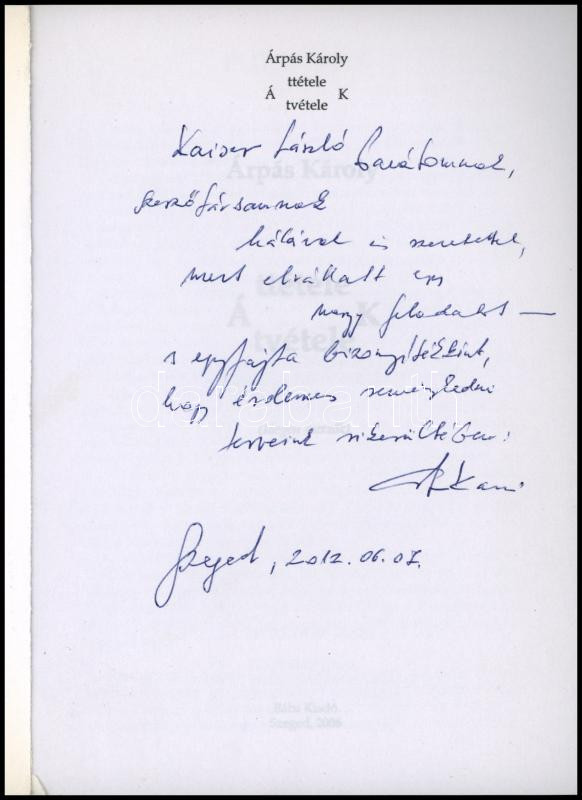 Árpás Károly
ttétele
Á K
tvétele
Kaiser László barátomnak,
szerzőtársamnak
hálával és szeretettel,
mert elvállalt egy
nagy feladatot —
s egyfajta bizonyítékként,
hogy érdemes reménykedni
terveink sikerültében:
Szeged, 2012.06.07.
Árpás Károly
ttétele
Á K
tvétele
darabanth
Bába Kiadó
Szeged, 2006